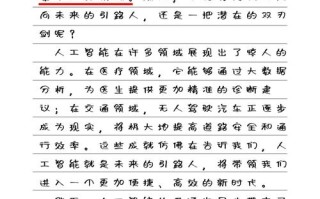 向未来的引路人，还是一把潜在的双刃
剑呢？
人工智能在许多领域展现出了惊人的
能力。在医疗领域，它能够通过大数据
分析，为医生提供更加精准的诊断建
议；在交通领域，无人驾驶汽车正逐步
成为现实，将极大地提高道路安全和通
行效率。这些成就仿佛在告诉我们，人
工智能就是未来的引路人，将带领我们
进入一个更加便捷、高效的新时代。